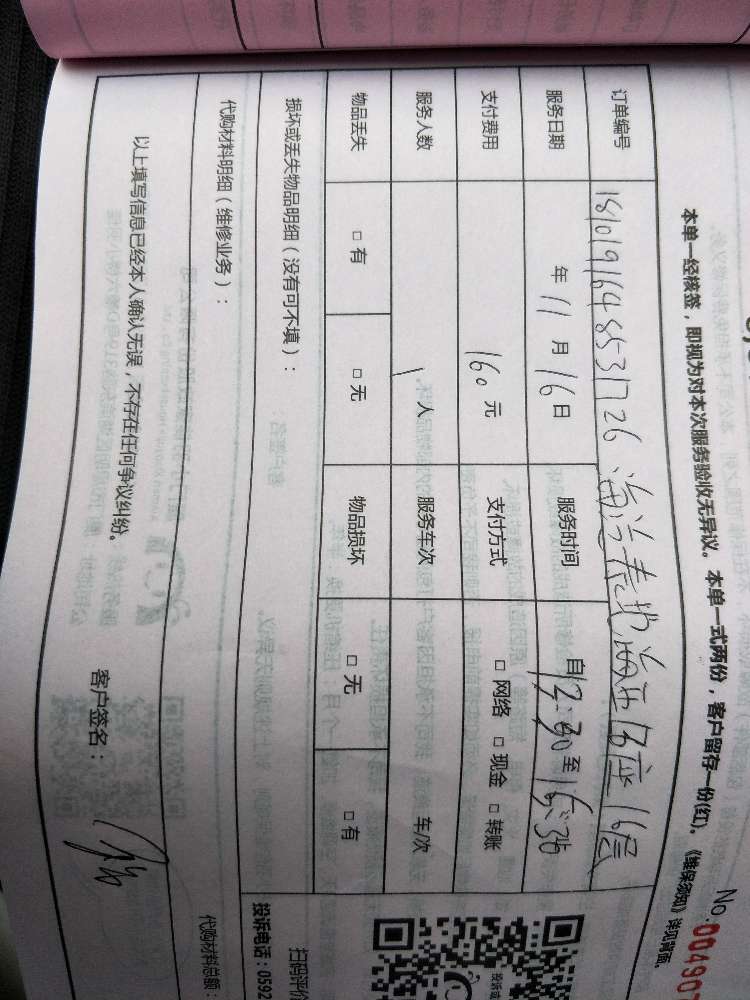 No:00490
本单一经核签，即视为对本次服务验收无异议。本单一式两份，客户留存一份(红)。《维保须知》详见背面。
订单编号 1810191648531726
服务日期 年 11 月 16 日 服务时间 自 12:30 至 15:36
支付费用 160 元 支付方式 □ 网络 □ 现金 □ 转账
服务人数 1 人 服务车次 车/次
物品丢失 □ 有 □ 无 物品损坏 □ 无 □ 有
损坏或丢失物品明细（没有可不填）：
代购材料明细（维修业务）：
代购材料总额：
以上填写信息已经本人确认无误，不存在任何争议纠纷。
客户签名：
扫码评价
投诉电话：0592